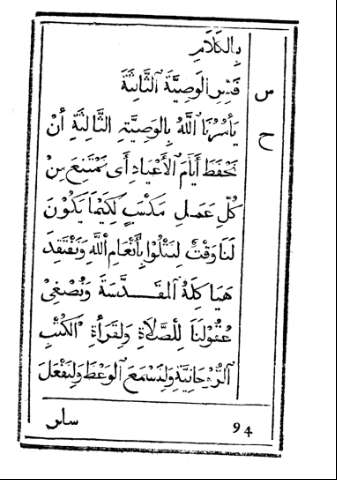 بِالكَلَامِ
س فَسِّرِ الوَصِيَّةَ ٱلثَّالِثَةَ
ح يَأْمُرُنَا ٱللَّهُ بِالوَصِيَّةِ ٱلثَّالِثَةِ أَنْ
نَحْفَظَ أَيَّامَ ٱلأَعْيَادِ أَى نَمْتَنِعَ مِنْ
كُلِّ عَمَلِ مَذْنَبٍ لِكَيْمَا يَكُونَ
لَنَا وَقْتٌ لِنَتْلُوا بِأَنْعَامِ ٱللَّهِ وَنَفْتَقِدَ
هَيَاكِلَهُ ٱلمُقَدَّسَةَ وَنُصْغِىَ
عُقُولَنَا لِلصَّلَاةِ وَلِقَرأَةِ ٱلكُتُبِ
ٱلرُّوْحَانِيَّةِ وَلِنَسْمَعَ ٱلوَعْظَ وَلِنَفْعَلَ
94